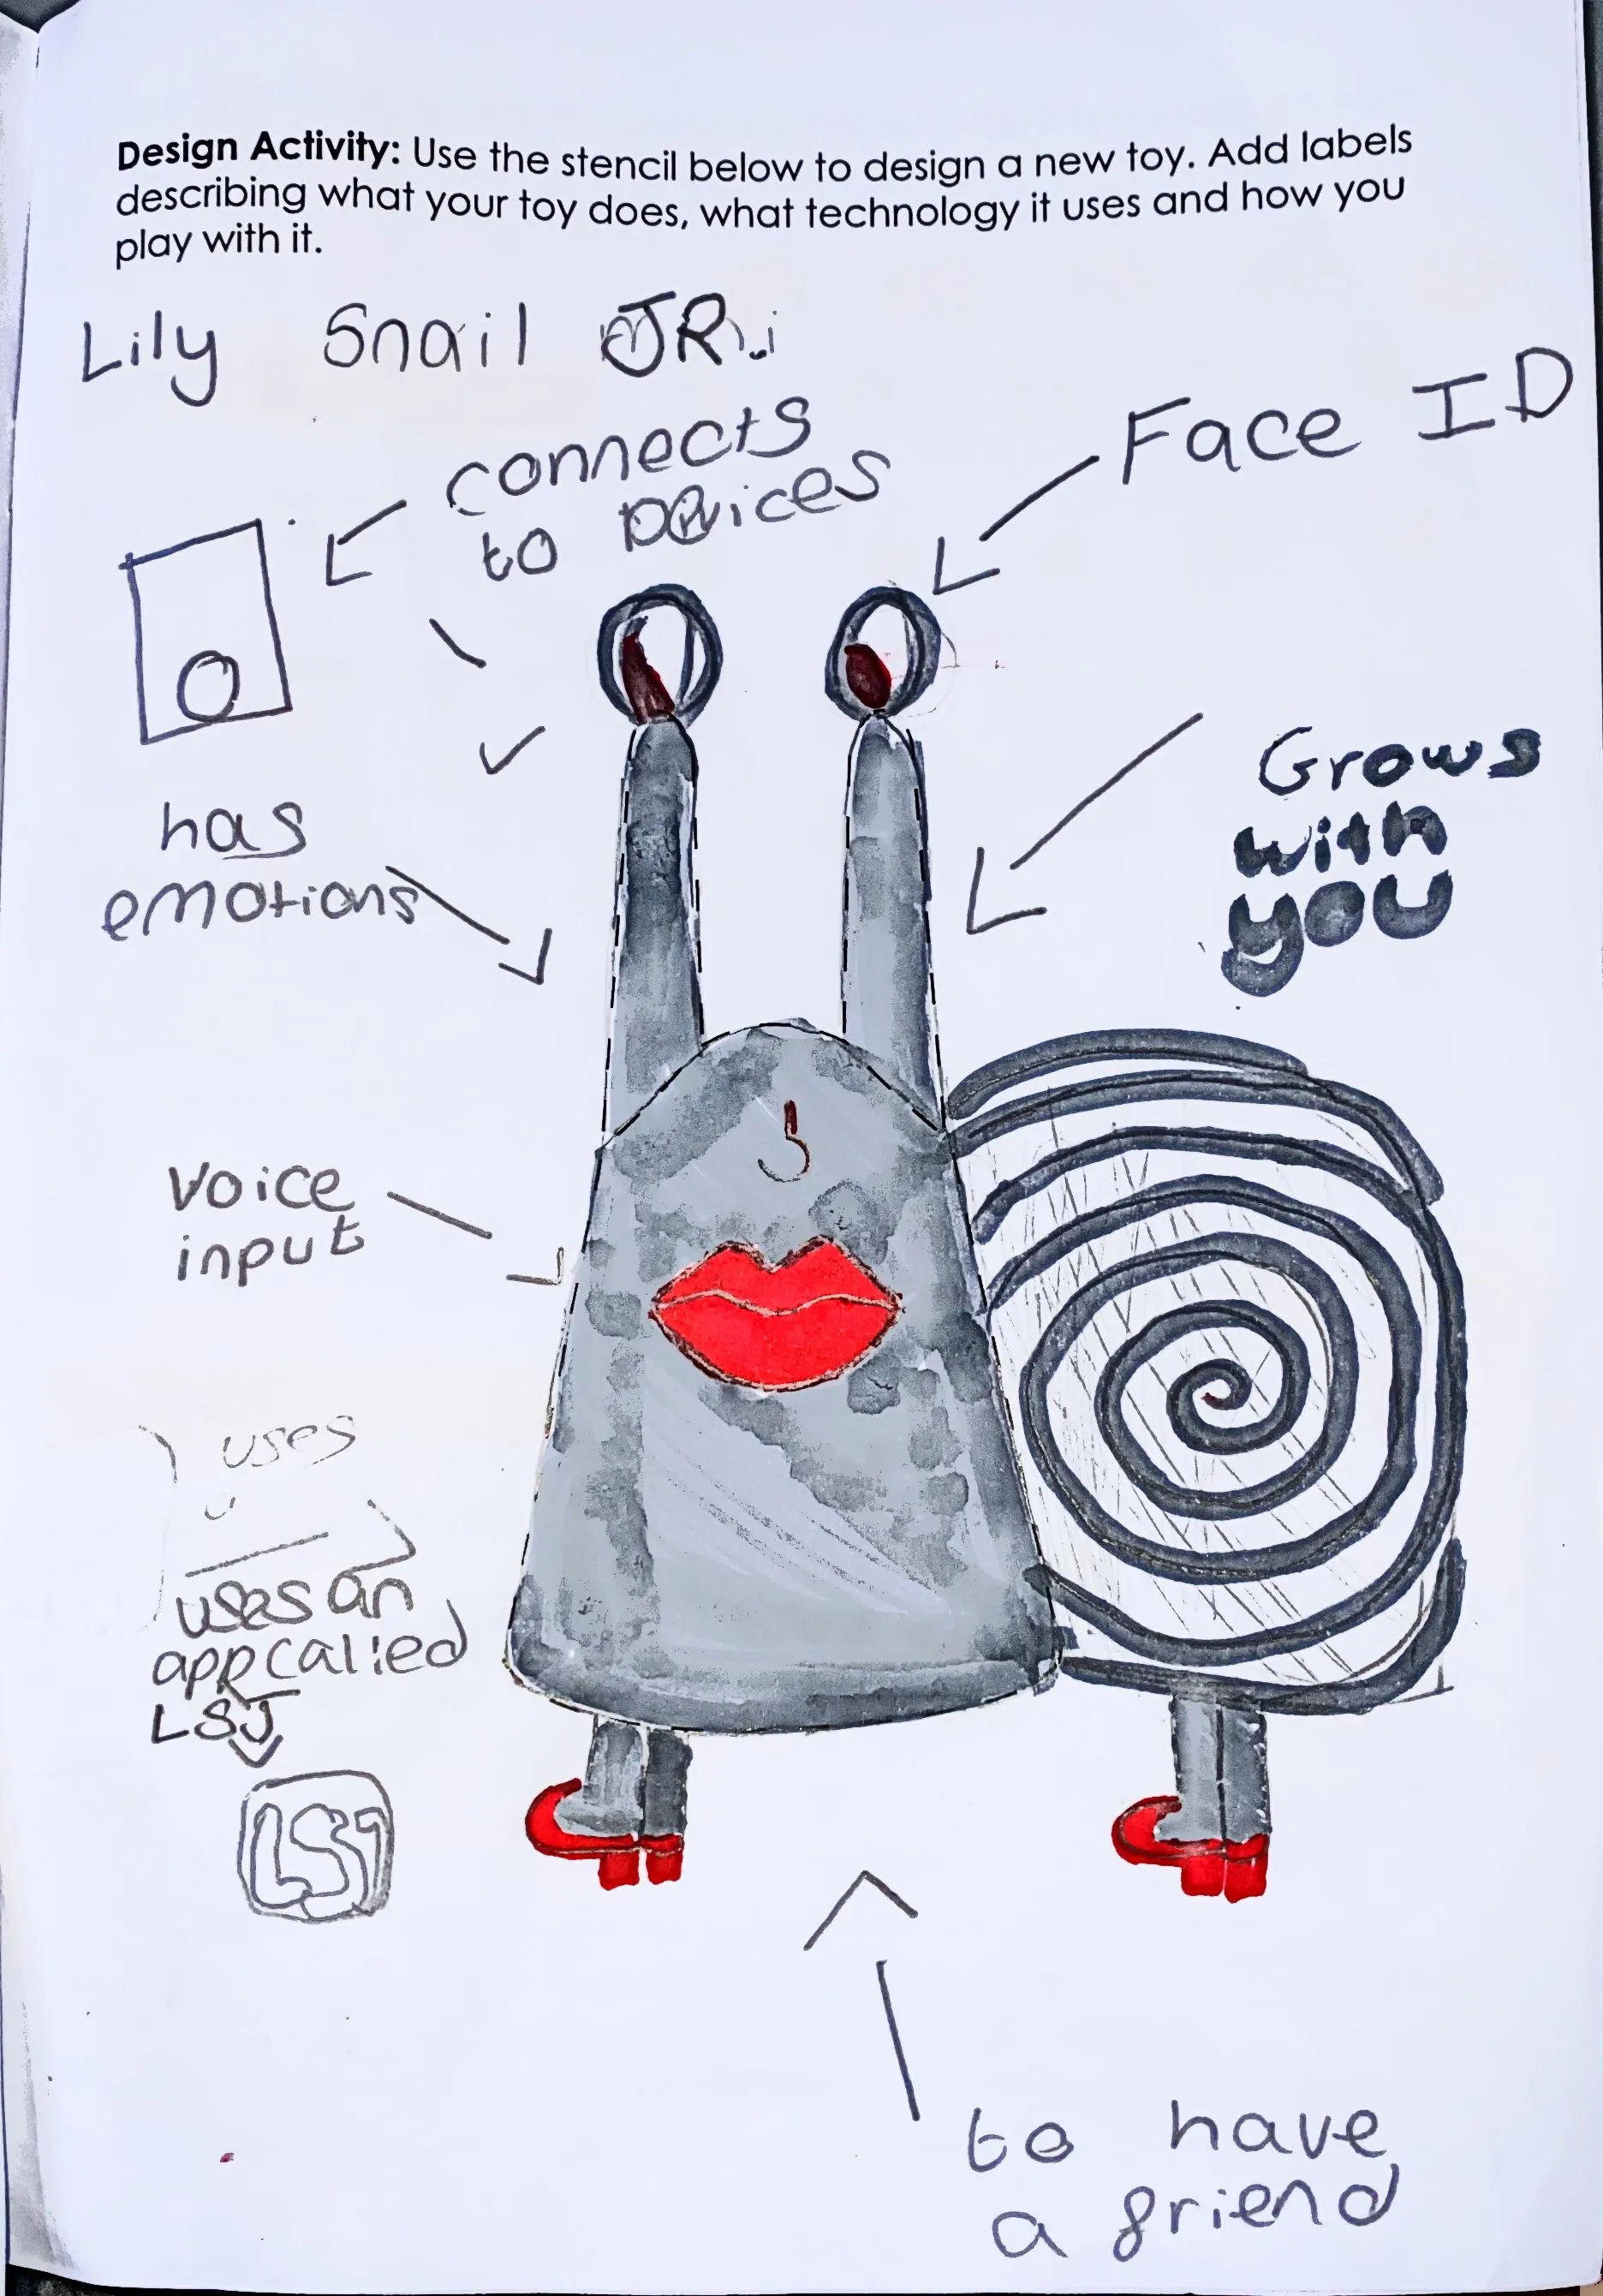 Design Activity: Use the stencil below to design a new toy. Add labels
describing what your toy does, what technology it uses and how you
play with it.
Lily Snail JR
connects
to Devices
Face ID
has
emotions
Grows
with
you
voice
input
uses
a
uses an
app called
LSJ
LSJ
to have
a friend